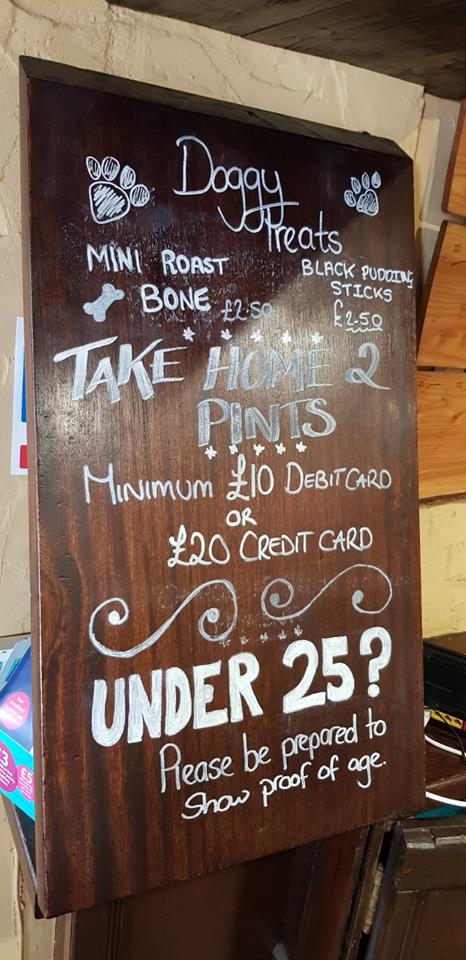 Doggy
Treats
MINI ROAST
BONE £2.50
BLACK PUDDING
STICKS
£2.50
TAKE HOME 2
PINTS
MINIMUM £10 DEBIT CARD
OR
£20 CREDIT CARD
UNDER 25?
Please be prepared to
Show proof of age.
£3
£5